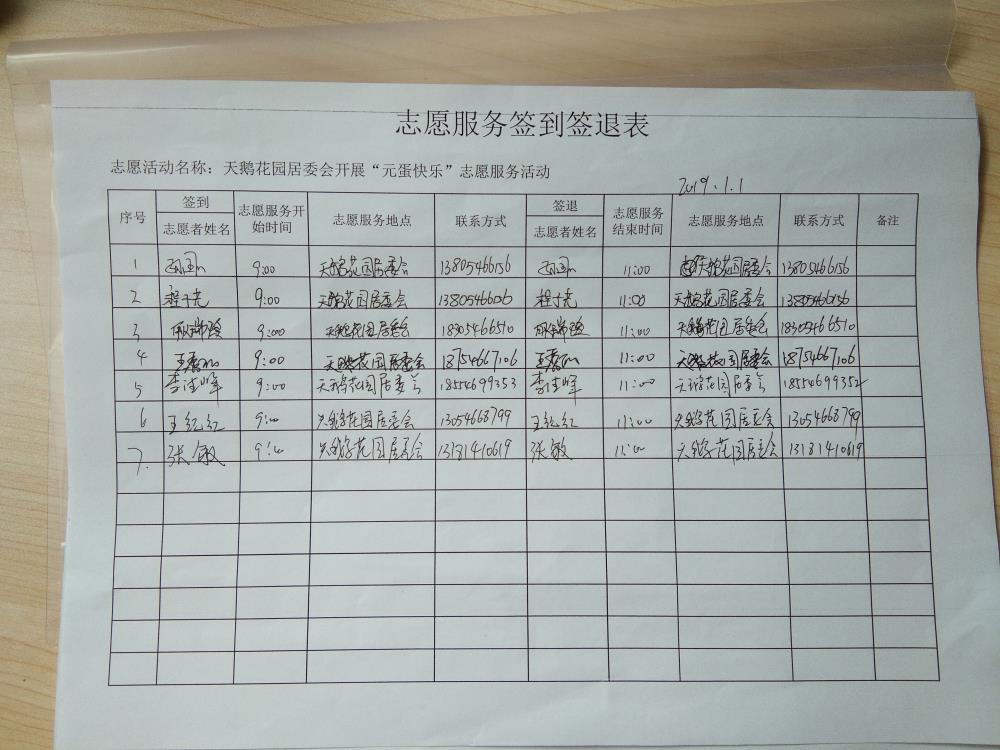 志愿服务签到签退表
志愿活动名称：天鹅花园居委会开展“元蛋快乐”志愿服务活动
2019.1.1
序号 签到 志愿者姓名 志愿服务开始时间 志愿服务地点 联系方式 签退 志愿者姓名 志愿服务结束时间 志愿服务地点 联系方式 备注
1 9:00 天鹅花园居委会 13805466156 11:00 天鹅花园居委会 13805466156
2 程子光 9:00 天鹅花园居委会 程子光 11:00 天鹅花园居委会 13805466156
3 9:00 天鹅花园居委会 18305466510 11:00 天鹅花园居委会 18305466510
4 9:00 天鹅花园居委会 18754667106 11:00 天鹅花园居委会 18754667106
5 9:00 天鹅花园居委会 11:00 天鹅花园居委会
6 王纪红 9:00 天鹅花园居委会 13054668799 王纪红 11:00 天鹅花园居委会 13054668799
7. 张敏 9:00 天鹅花园居委会 13181410619 张敏 11:00 天鹅花园居委会 13181410619